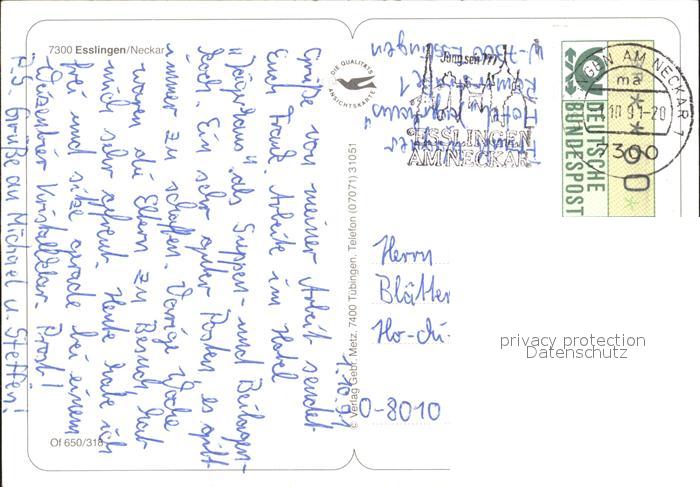 7300 Esslingen/Neckar
1.10.91
Grüße von meiner Arbeit sendet
Euch Arbeite im Hotel
"Jägerhaus" als Suppen- und Beilagen-
koch. Ein sehr guter Posten, es gibt
immer zu schaffen. Vorige Woche
waren die Eltern zu Besuch, hat
mich sehr gefreut. Heute habe ich
frei und sitze gerade bei einem
Weizenbier Kristallklar. Prost!
P.S. Grüße an Michael u. Steffen!
Hotel "Jägerhaus"
Römerstraße 1
W-7300 Esslingen
DIE QUALITÄTS
ANSICHTSKARTE
© Verlag Gebr. Metz, 7400 Tübingen, Telefon (07071) 31051
Of 650/318
Jung seit 777
ESSLINGEN
AM NECKAR
GEN AM NECKAR 1
ma
10.91-20
7300
DEUTSCHE
BUNDESPOST
Herrn
Blätter
Ho-chi-
O-8010
privacy protection
Datenschutz